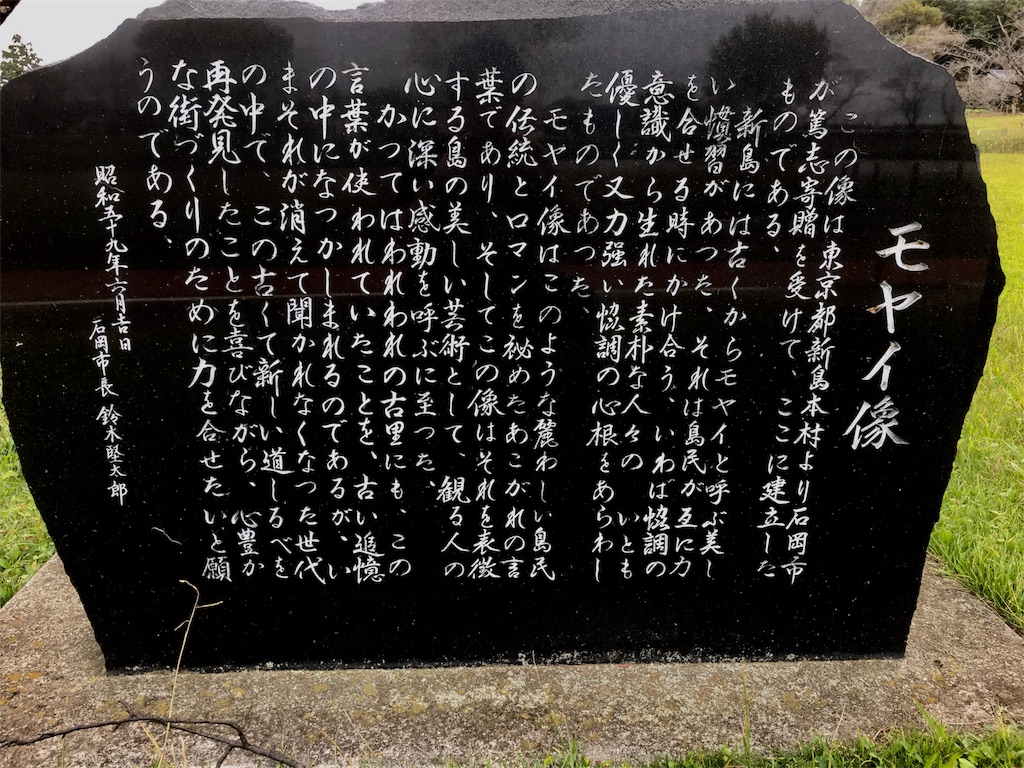 モヤイ像
この像は東京都新島本村より石岡市
が篤志寄贈を受けて、ここに建立した
ものである、
新島には古くからモヤイと呼ぶ美し
い慣習があつた、それは島民が互に力
を合せる時にかけ合う、いわば協調の
意識から生れた素朴な人々の いとも
優しく又力強い協調の心根をあらわし
たものであつた、
モヤイ像はこのような麗わしい島民
の伝統とロマンを秘めたあこがれの言
葉であり、そしてこの像はそれを表徴
する島の美しい芸術として、観る人の
心に深い感動を呼ぶに至つた、
かつてはわれわれの古里にも、この
言葉が使われていたことを、古い追憶
の中になつかしまれるのであるが、い
まそれが消えて聞かれなくなつた世代
の中で、この古くて新しい道しるべを
再発見したことを喜びながら、心豊か
な街づくりのために力を合せたいと願
うのである、
昭和五十九年六月吉日
石岡市長 鈴木堅太郎